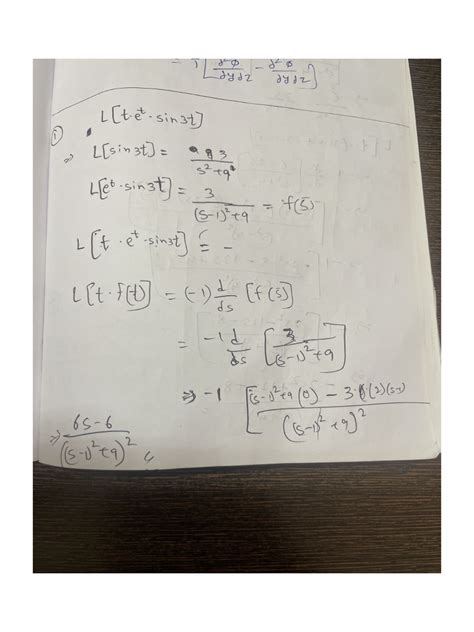 = [ ∂²φ/∂y∂z − ∂²φ/∂y∂z ]
① L[t·eᵗ·sin3t]
⇒ L[sin3t] = 3/(s²+9)
L[eᵗ·sin3t] = 3/((s-1)²+9) = f(s)
L[t·eᵗ·sin3t] = -
L[t·f(t)] = (-1) d/ds [f(s)]
= -1 d/ds [3/((s-1)²+9)]
⇒ -1 [((s-1)²+9(0) − 3(2)(s-1))/((s-1)²+9)²]
⇒ (6s-6)/((s-1)²+9)²